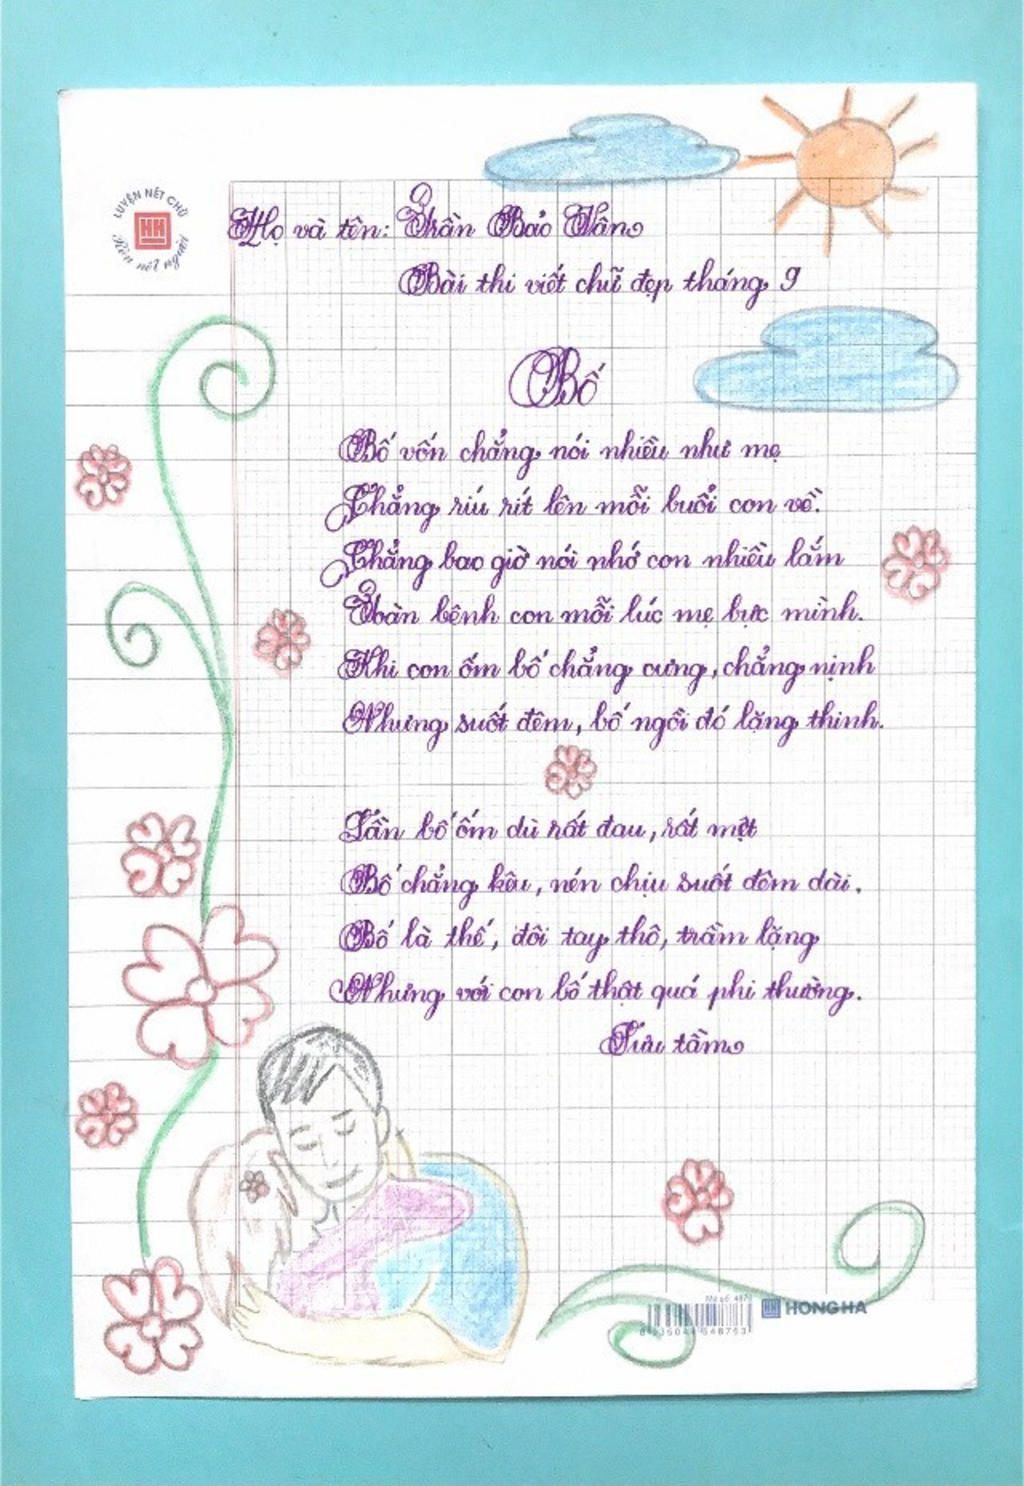 LUYỆN NÉT CHỮ
HH
Rèn nết người
Họ và tên: Trần Bảo Vân
Bài thi viết chữ đẹp tháng 9
Bố
Bố vốn chẳng nói nhiều như mẹ
Chẳng ríu rít lên mỗi buổi con về.
Chẳng bao giờ nói nhớ con nhiều lắm
Toàn bênh con mỗi lúc mẹ bực mình.
Khi con ốm bố chẳng cưng, chẳng nịnh
Nhưng suốt đêm, bố ngồi đó lặng thinh.
Lần bố ốm dù rất đau, rất mệt
Bố chẳng kêu, nén chịu suốt đêm dài.
Bố là thế, đôi tay thô, trầm lặng
Nhưng với con bố thật quá phi thường.
Sưu tầm
HH HONG HA